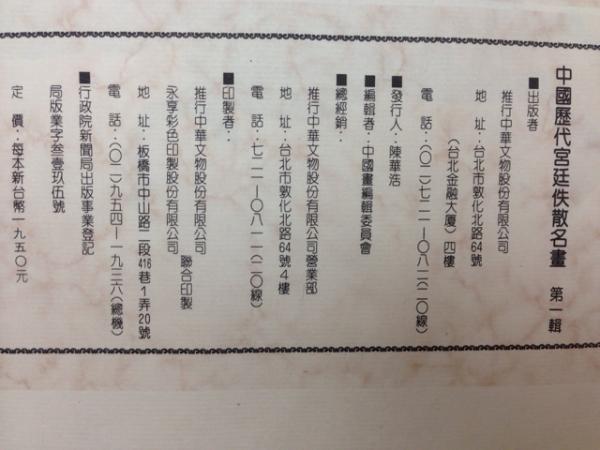 中國歷代宮廷佚散名畫　第一輯
■出版者
推行中華文物股份有限公司
地　址：台北市敦化北路64號
（台北金融大廈）四樓
電　話：（〇二）七二一—〇八一一（二〇線）
■發行人：陳華浩
■編輯者：中國畫編輯委員會
■總經銷：
推行中華文物股份有限公司營業部
地　址：台北市敦化北路64號4樓
電　話：七二一—〇八一一（二〇線）
■印製者：
推行中華文物股份有限公司
永享彩色印製股份有限公司
聯合印製
地　址：板橋市中山路二段416巷1弄20號
電　話：（〇二）九五四—一九三六（總機）
■行政院新聞局出版事業登記
局版業字叁壹玖伍號
定　價：每本新台幣一九五〇元